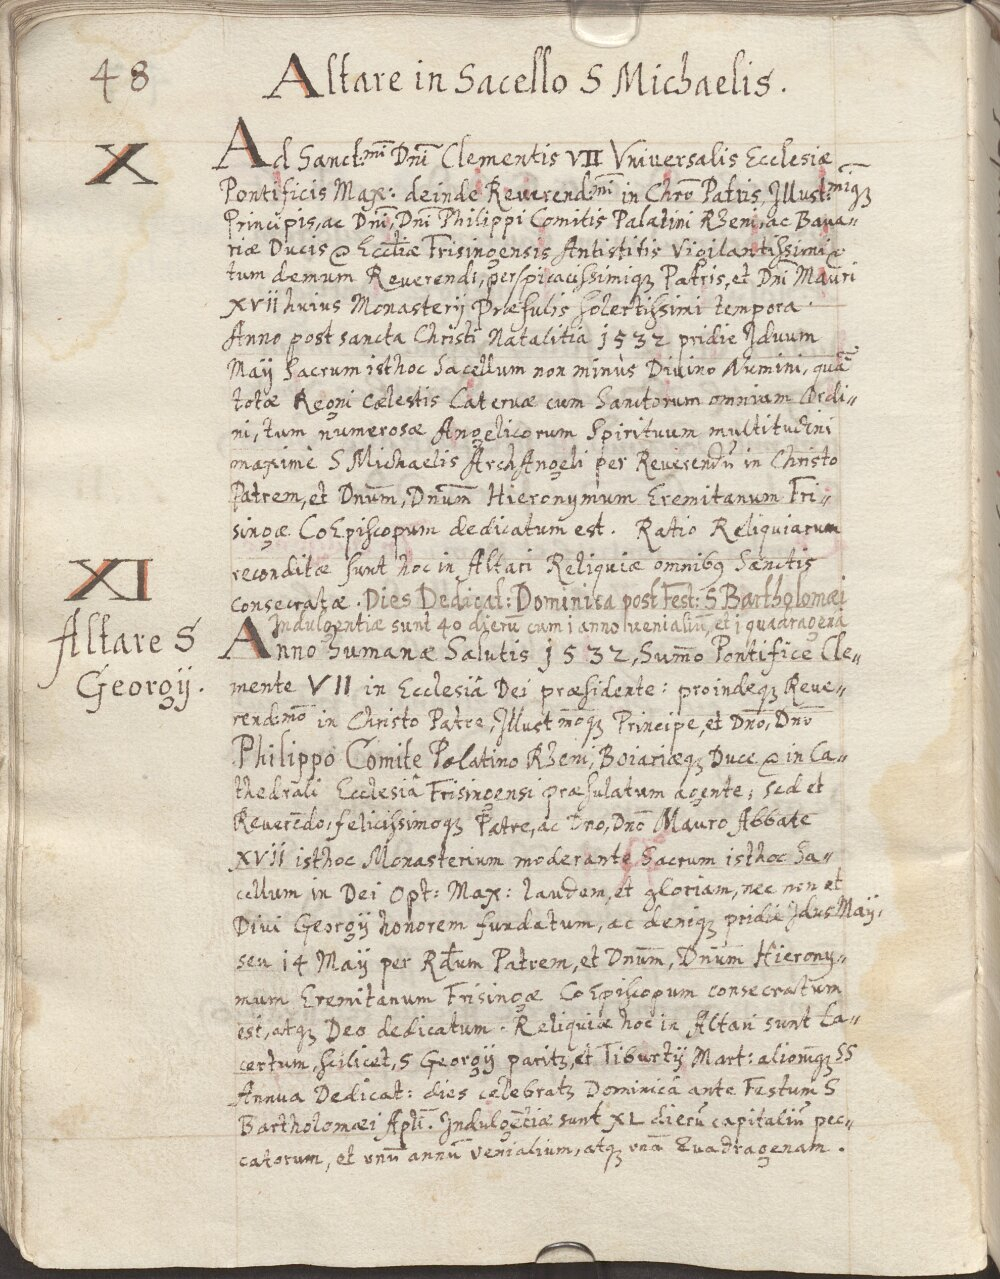 48
Altare in Sacello S Michaelis.
X
Ad Sanct:mi Dni Clementis VII Vniversalis Ecclesiæ
Pontificis Max: deinde Reverend:mi in Chro Patris, Illust:miq3
Principis, ac Dni, Dni Philippi Comitis Palatini Rheni, ac Bava-
riæ Ducis & Eccliæ Frisingensis Antistitis Vigilantissimi &
tum demum Reverendi, perspicacissimiq3 Patris, et Dni Mauri
XVII huius Monasterij Præsulis solertissimi tempora.
Anno post sancta Christi Natalitia 1532 pridie Iduum
Maij Sacrum isthoc Sacellum non minùs Divino Numini, quā
totæ Regni cælestis Catervæ cum Sanctorum omnium Ordi-
ni, tum numerosæ Angelicorum Spirituum multitudini
maximè S Michaelis ArchAngeli per Reverendū in Christo
Patrem, et Dnum, Dnum Hieronymum Eremitanum Fri-
singæ CoEpiscopum dedicatum est. Ratio Reliquiarum
reconditæ sunt hoc in Altari Reliquiæ omnibq Sanctis
consecratæ. Dies Dedicat: Dominica post Fest: S Bartholomæi
Indulgentiæ sunt 40 dierū cum 1 anno venialiū, et 1 quadragena
XI
Altare S
Georgij.
Anno Humanæ Salutis 1532, Sumo Pontifice Cle-
mente VII in Ecclesiâ Dei præsidente: proindeq3 Reve-
rend:mo in Christo Patre, Illustmoq3 Principe, et Dno, Dno
Philippo Comite Palatino Rheni, Boiariæq3 Duce & in Ca-
thedrali Ecclesiâ Frisingensi præsulatum agente; sed et
Reverēdo, felicissimoq3 Patre, ac Dno, Dno Mauro Abbate
XVII isthoc Monasterium moderante Sacrum isthoc Sa-
cellum in Dei Opt: Max: laudem, et gloriam, nec non et
Divi Georgij honorem fundatum, ac deniq3 pridie Idus Maij,
seu 14 Maij per Rdum Patrem, et Dnum, Dnum Hierony-
mum Eremitanum Frisingæ CoEpiscopum consecratum
est, atq3 Deo dedicatum. Reliquiæ hoc in Altari sunt La-
certum, scilicet, S Georgij parit3, et Tiburtij Mart: aliorūq3 SS
Annua Dedicat: dies celebrat3 Dominicâ ante Festum S
Bartholomæi Apli. Indulgētiæ sunt XL dierū capitaliū pec-
catorum, et vnū annū venialium, atq3 vnā Quadragenam.